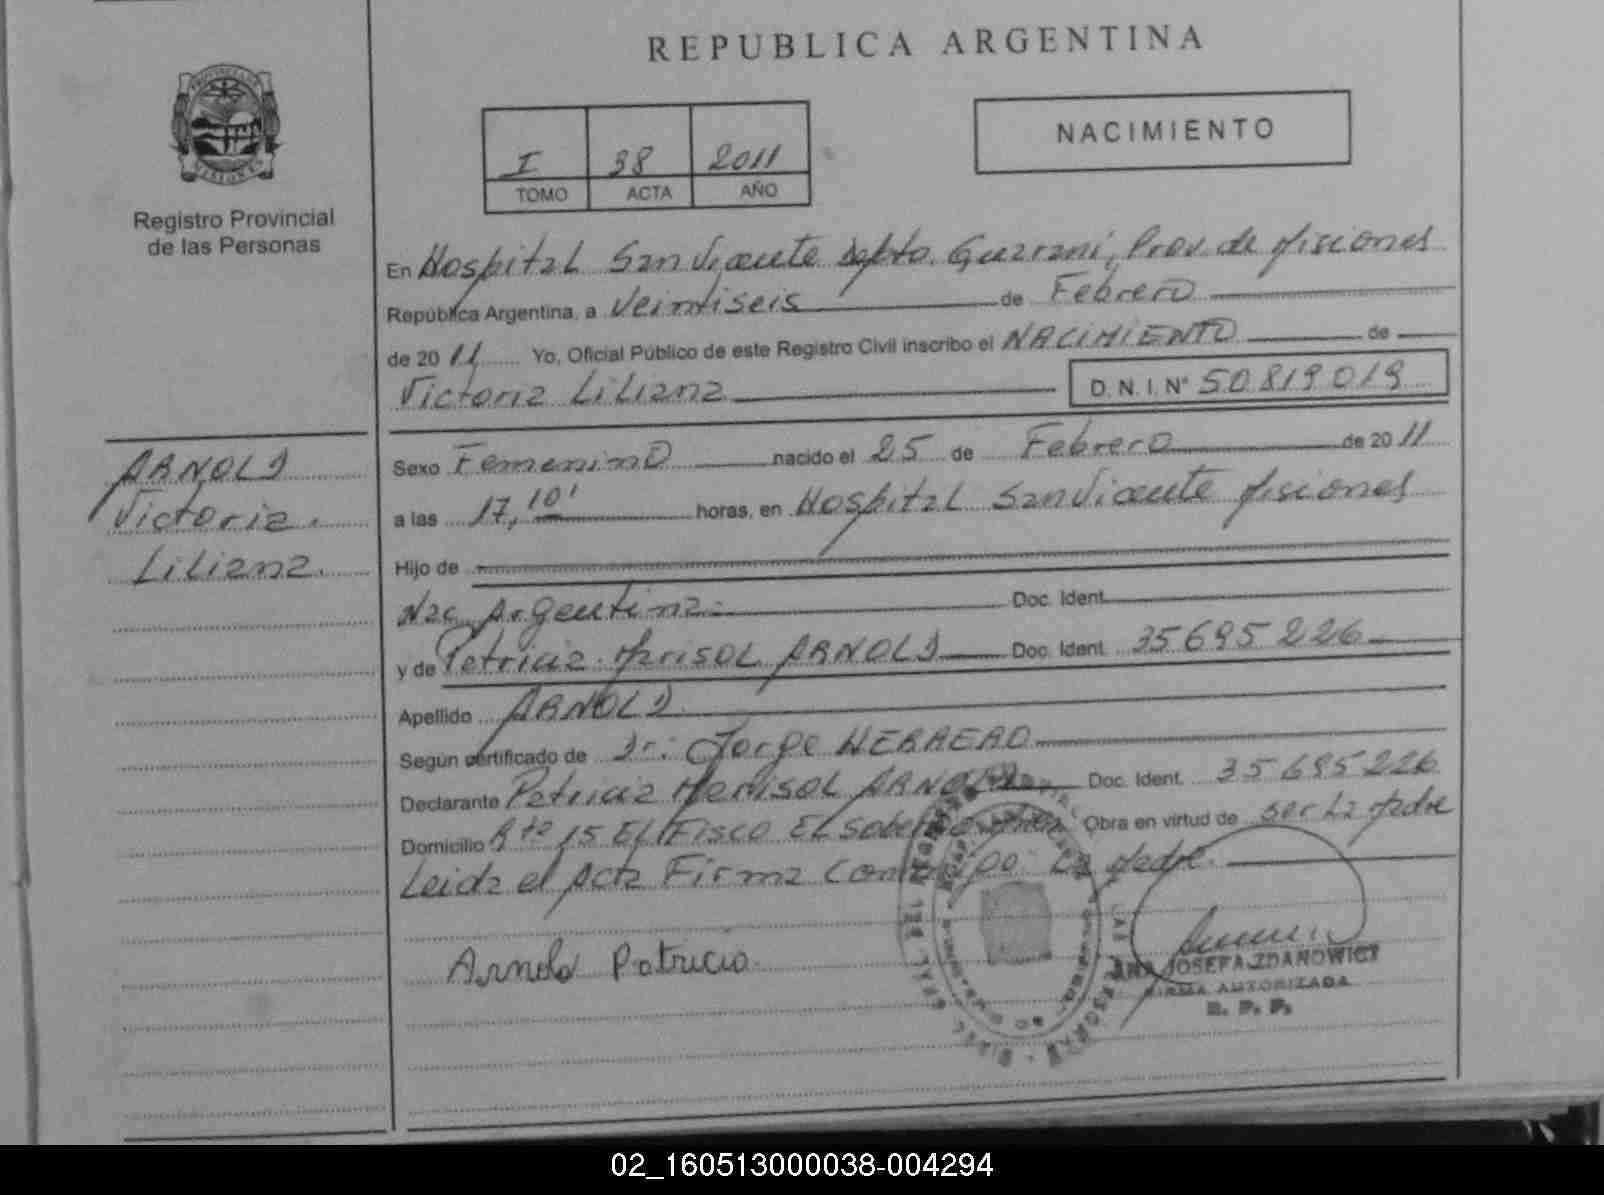 REPUBLICA ARGENTINA
PROVINCIA DE
MISIONES
Registro Provincial
de las Personas
I 38 2011
TOMO ACTA AÑO
NACIMIENTO
En Hospital San Vicente Dpto. Guarani, Prov. de Misiones
República Argentina, a Veintiseis de Febrero
de 2011 Yo, Oficial Público de este Registro Civil inscribo el NACIMIENTO de
Victoria Liliana D.N.I. N° 50819019
ARNOLD
Victoria
Liliana
Sexo Femenino nacido el 25 de Febrero de 2011
a las 17,10' horas, en Hospital San Vicente Misiones
Hijo de
Nac. Argentina Doc. Ident.
y de Patricia Marisol ARNOLD Doc. Ident. 35695226
Apellido ARNOLD
Según certificado de Dr: Jorge HERRERO
Declarante Patricia Marisol ARNOLD Doc. Ident. 35695226
Domicilio Rta 15 El Fisco El Soberbio Obra en virtud de ser La Madre
Leida el Acta Firma Conmigo: La Madre.
Arnold Patricia
ANA JOSEFA ZDANOWICZ
FIRMA AUTORIZADA
R. P. P.
02_160513000038-004294